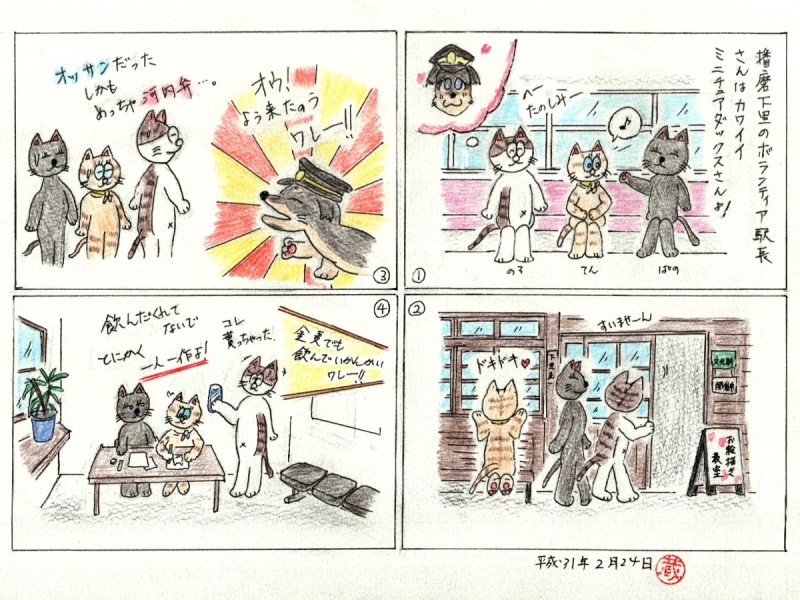 ①
播磨下里のボランティア駅長
さんはカワイイ
ミニチュアダックスさんよ!
へー
たのしみー
♪
のろ
てん
ぱの
②
すいませーん
ドキドキ♥
下里
お絵描き
教室
③
オウ!
よう来たのう
ワレー!!
オッサンだった
しかも
めっちゃ河内弁…。
④
金魚でも
飲んでいかんかい
ワレー!!
コレ
貰っちゃった
飲んだくれて
ないで
とにかく
一人一作よ!
平成31年2月24日
蔵